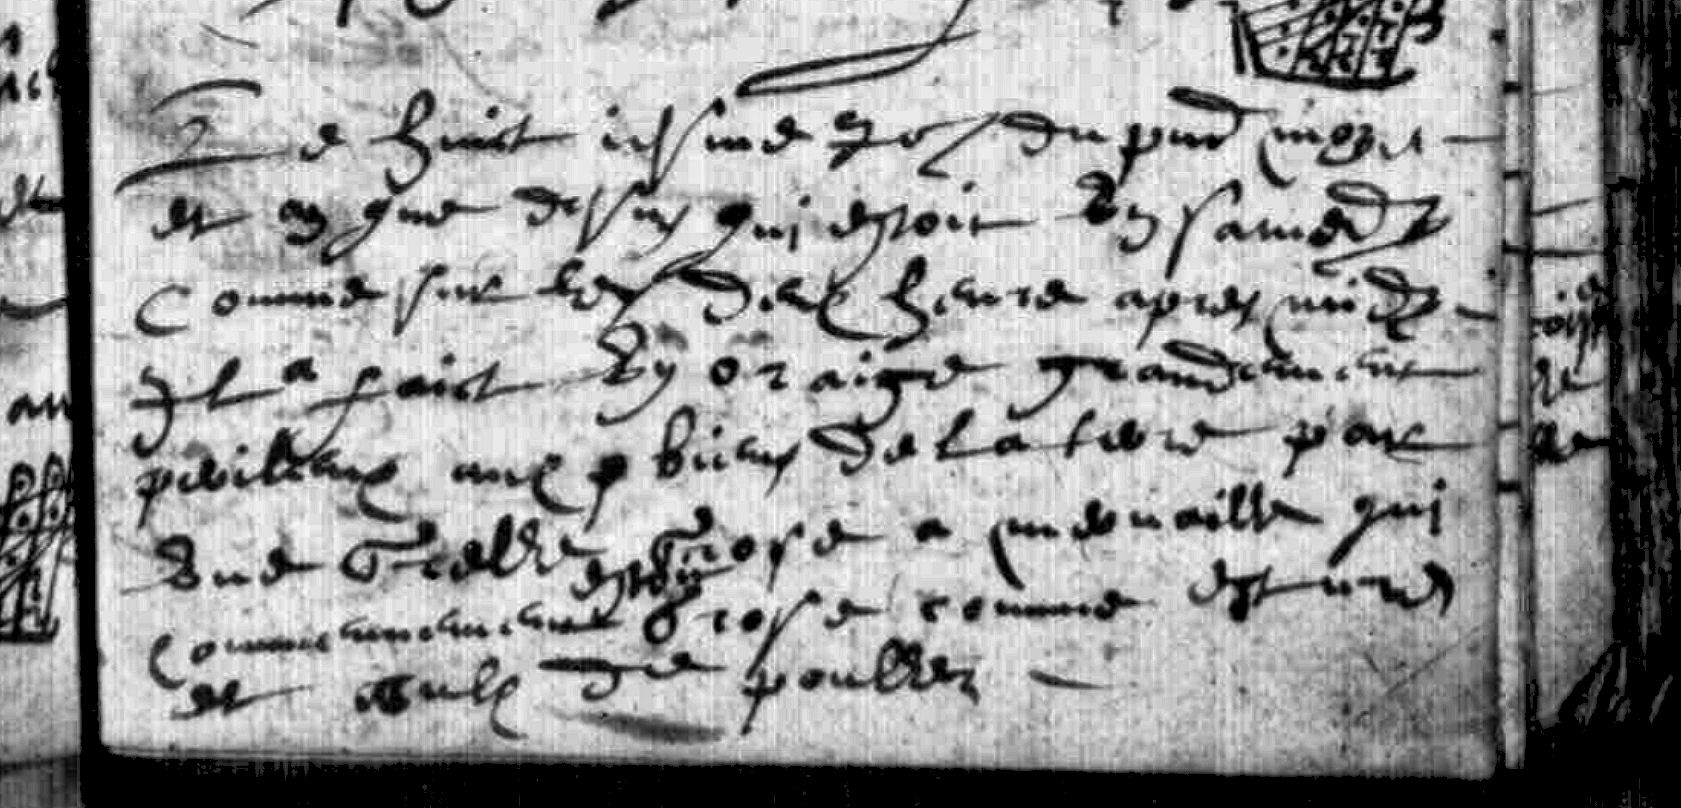 Le huict iesme jor du pnt moys
et an que dessus qui estoit Ung samedy
Comme sur les deux heure apres midy
Il a faict Ung oraige grandement
perilleux aux biens de la terre par
Une Grelle Grose a merveille qui
estoit
Communement Grose comme
et œufz de poulles